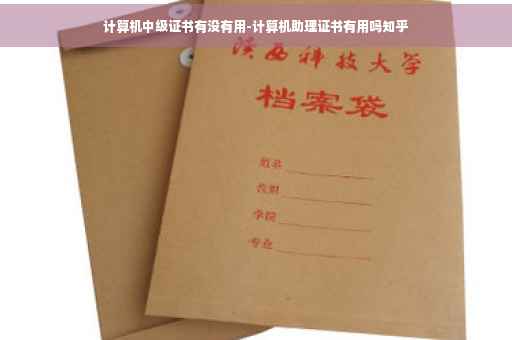 计算机中级证书有没有用-计算机助理证书有用吗知乎
陕西科技大学
档案袋
姓名
学院
专业